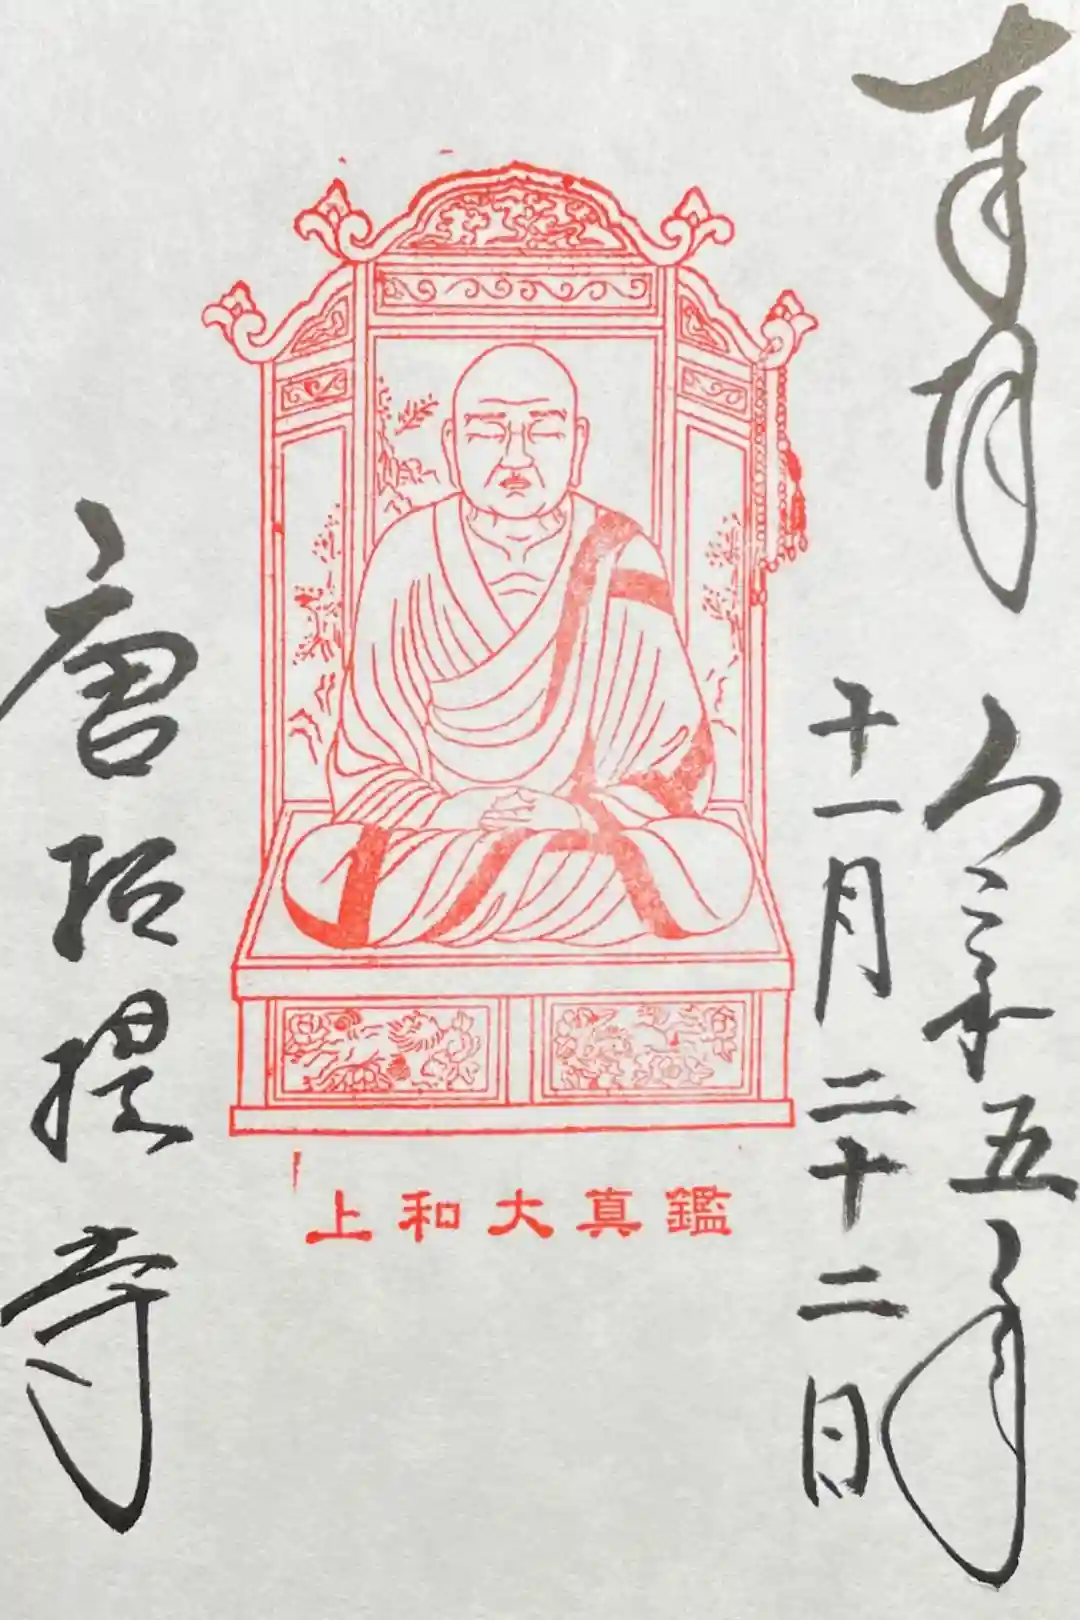 奉拝 令和五年
十一月二十二日
鑑真大和上
唐招提寺